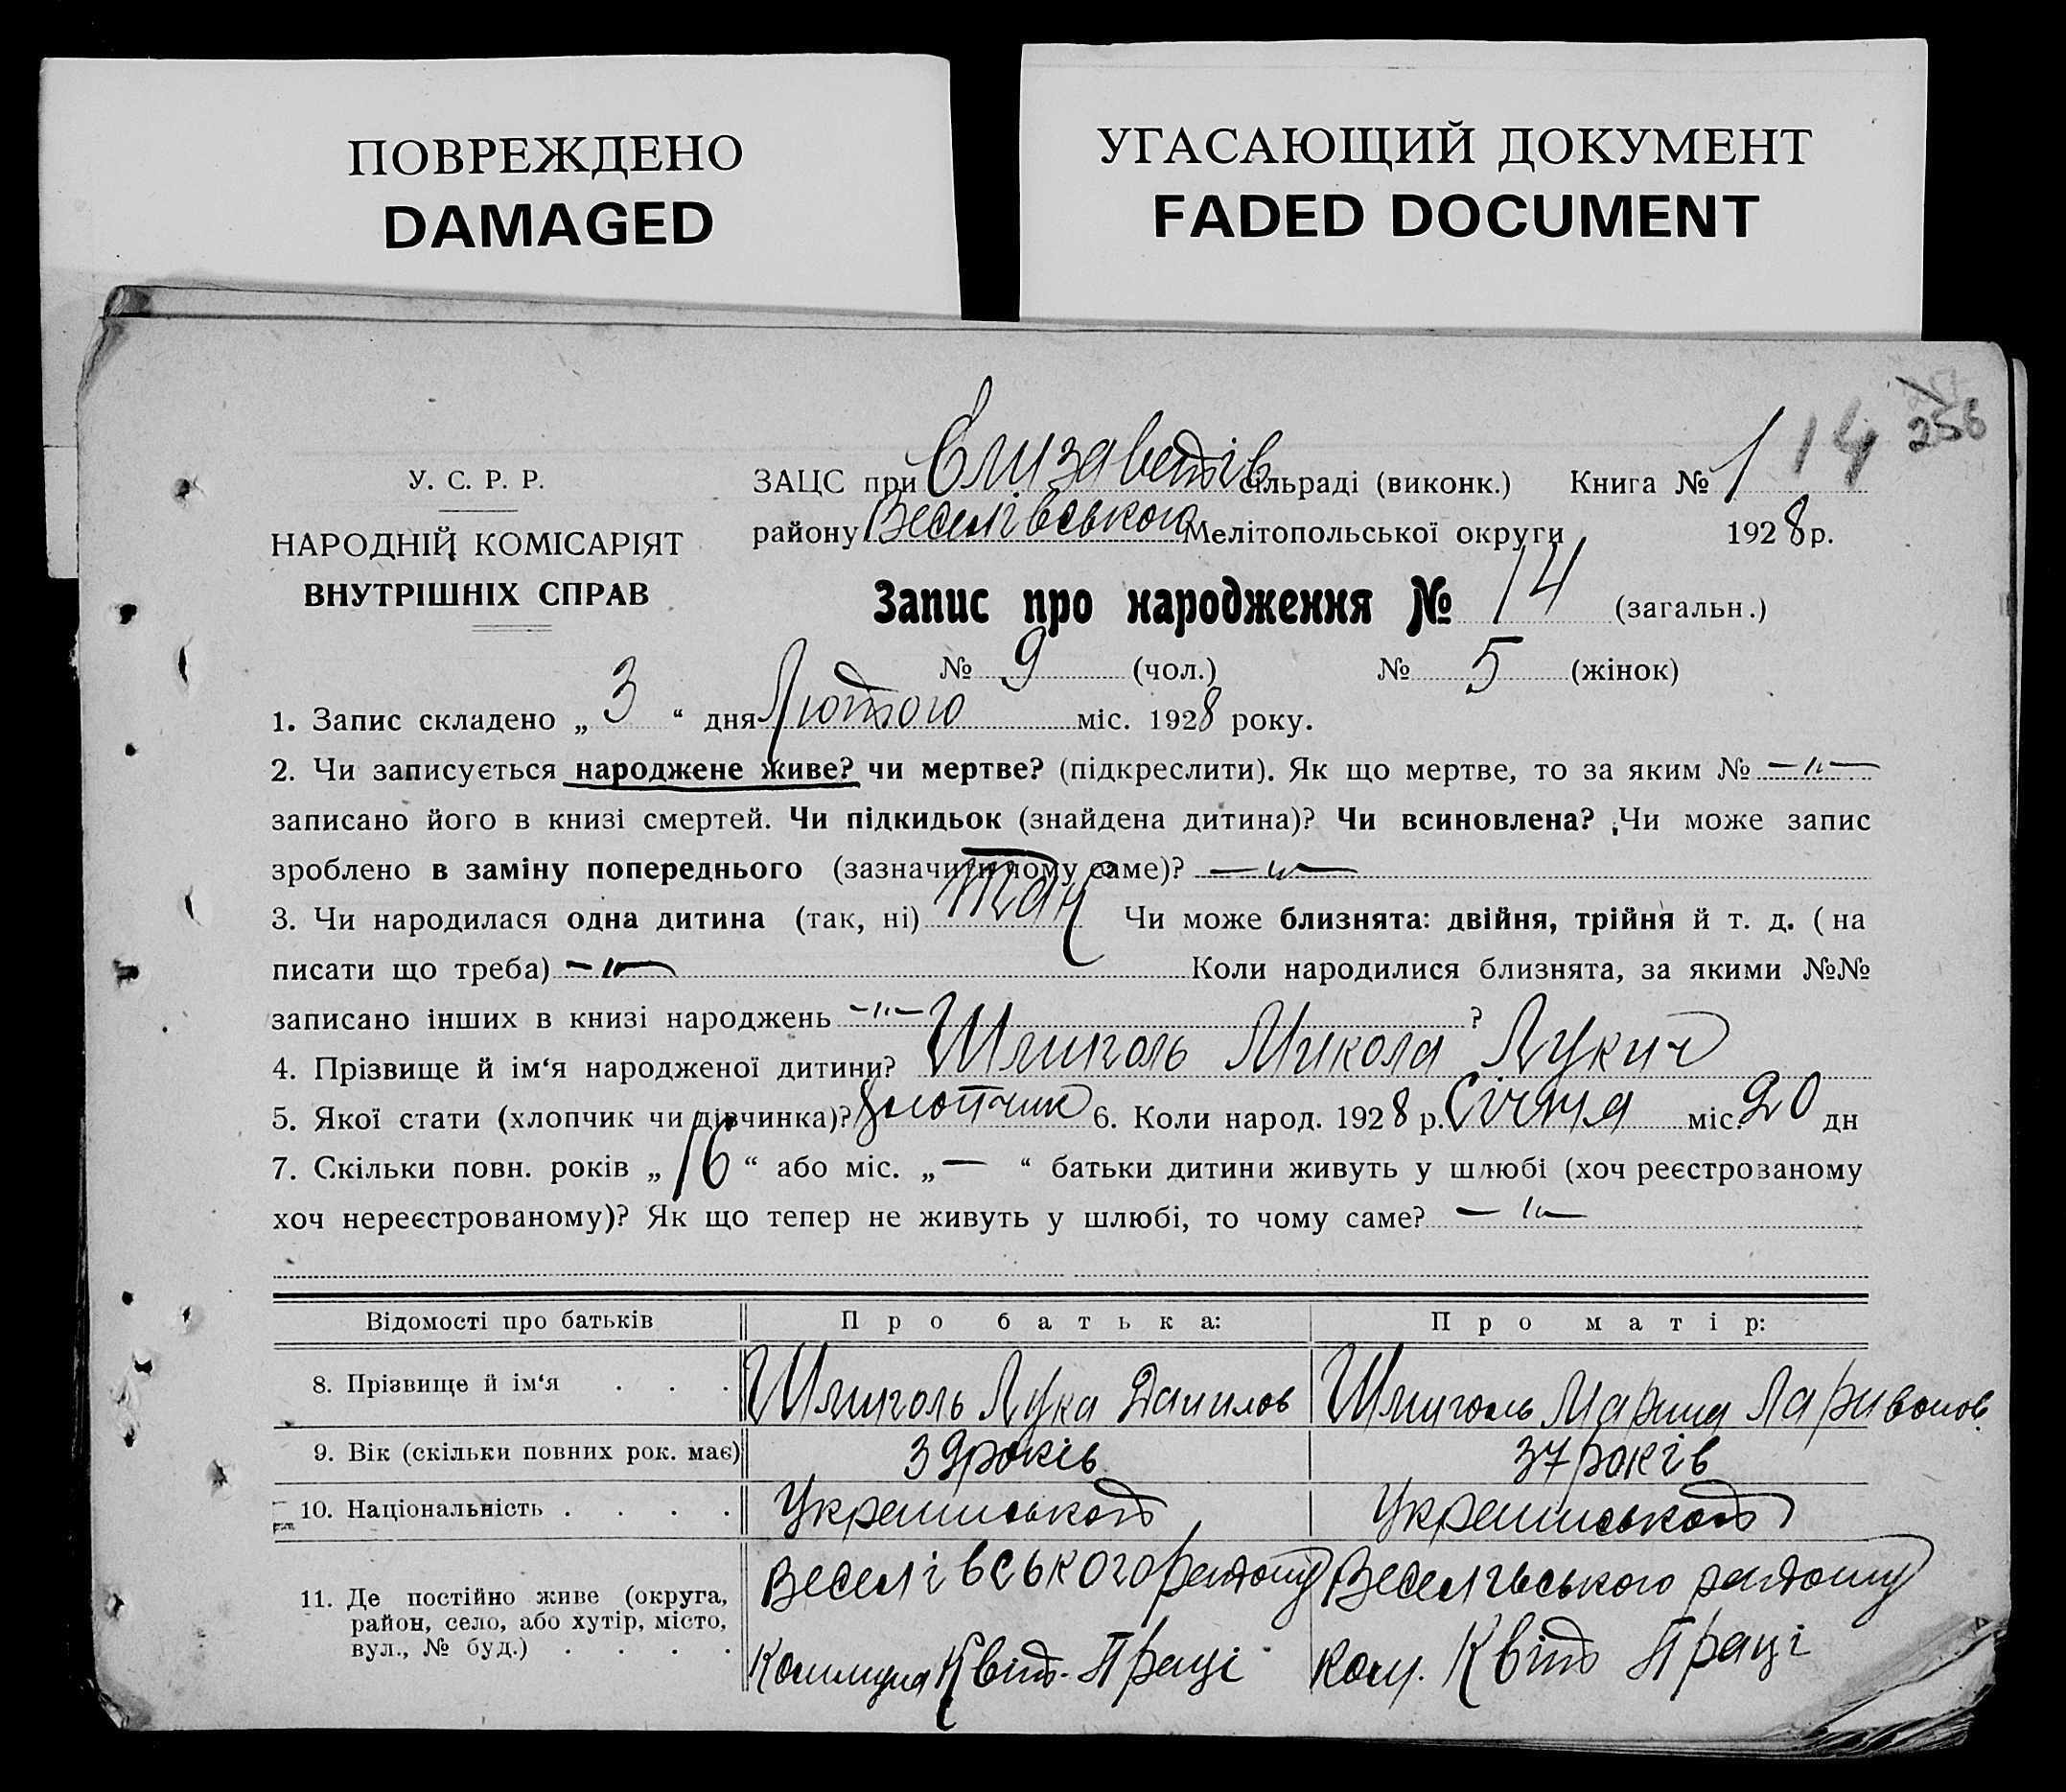 ПОВРЕЖДЕНО
DAMAGED
УГАСАЮЩИЙ ДОКУМЕНТ
FADED DOCUMENT
256
14
У. С. Р. Р.
НАРОДНІЙ КОМІСАРІЯТ
ВНУТРІШНІХ СПРАВ
ЗАЦС при Єлизаветів сільраді (виконк.) Книга № 1
району Веселівського Мелітопольської округи 1928 р.
Запис про народження № 14 (загальн.)
№ 9 (чол.) № 5 (жінок)
1. Запис складено „ 3 “ дня Лютого міс. 1928 року.
2. Чи записується народжене живе? чи мертве? (підкреслити). Як що мертве, то за яким № —"—
записано його в книзі смертей. Чи підкидьок (знайдена дитина)? Чи всиновлена? Чи може запис
зроблено в заміну попереднього (зазначити чому саме)? —"—
3. Чи народилася одна дитина (так, ні) так Чи може близнята: двійня, трійня й т. д. (на
писати що треба) —"— Коли народилися близнята, за якими №№
записано інших в книзі народжень —"— ?
4. Прізвище й ім‘я народженої дитини? Шмиголь Микола Лукич
5. Якої стати (хлопчик чи дівчинка)? хлопчик 6. Коли народ. 1928 р. Січня міс. 20 дн
7. Скільки повн. років „ 16 “ або міс. „ — “ батьки дитини живуть у шлюбі (хоч реєстрованому
хоч нереєстрованому)? Як що тепер не живуть у шлюбі, то чому саме? —"—
Відомості про батьків Про батька: Про матір:
8. Прізвище й ім‘я . . . Шмиголь Лука Данилов Шмиголь Марина Ларивонов
9. Вік (скільки повних рок. має) 39 років 37 років
10. Національність . . . . Української Української
11. Де постійно живе (округа, район, село, або хутір, місто, вул., № буд.) . . . .
Веселівського району Веселівського району
Коммуна Квіт. Праці Ком. Квіт Праці